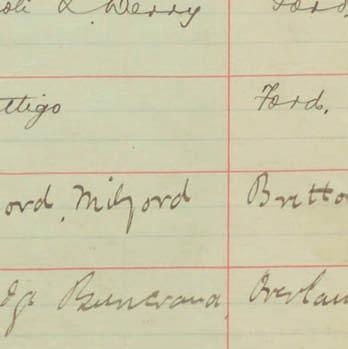 & Derry Ford,
ttigo Ford.
ord, Milford Britto
Buncrana, Overlan